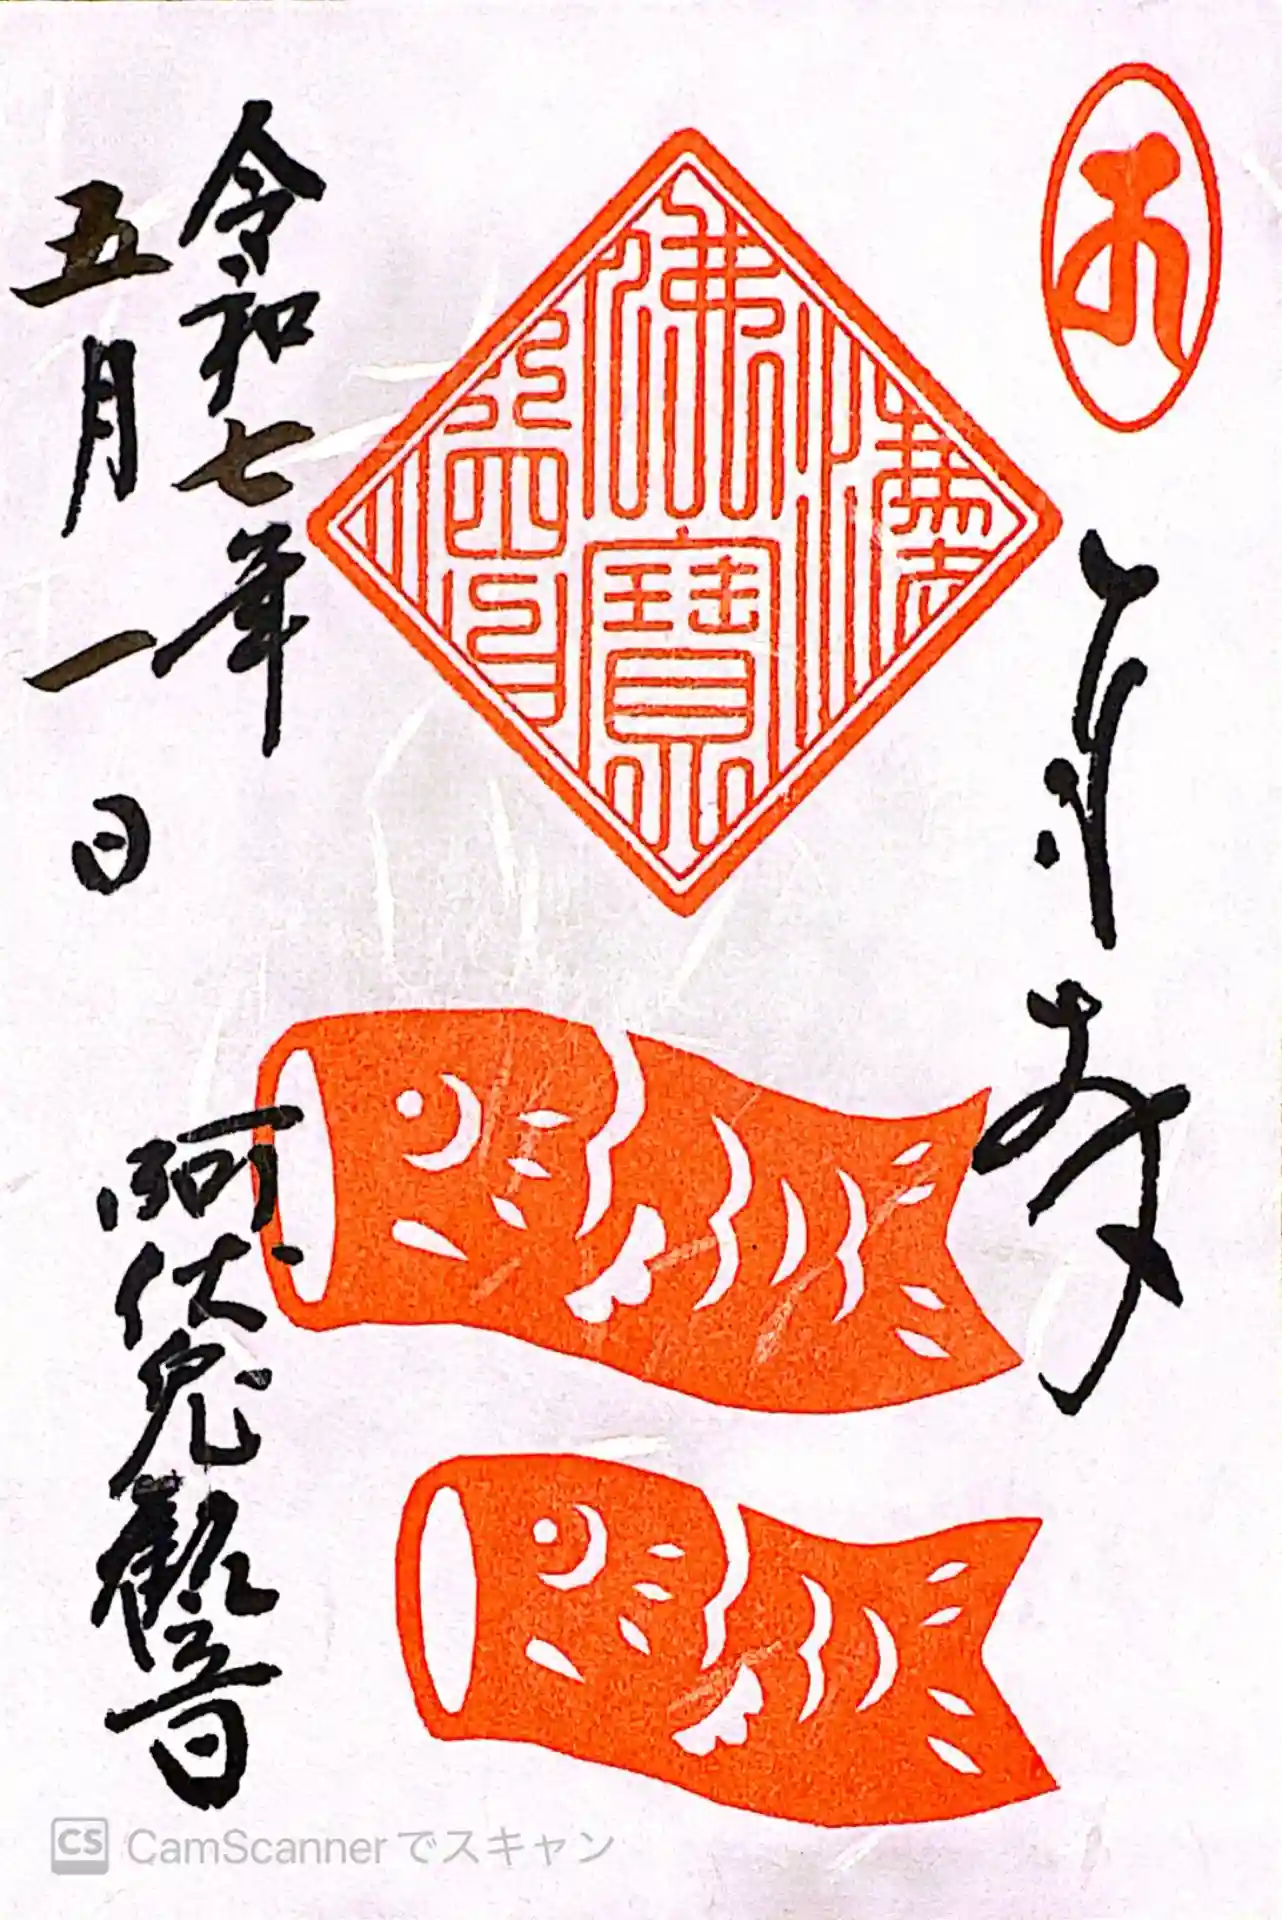 奉拝
佛法僧寶
令和七年
五月一日
阿伏兔観音
CS CamScannerでスキャン